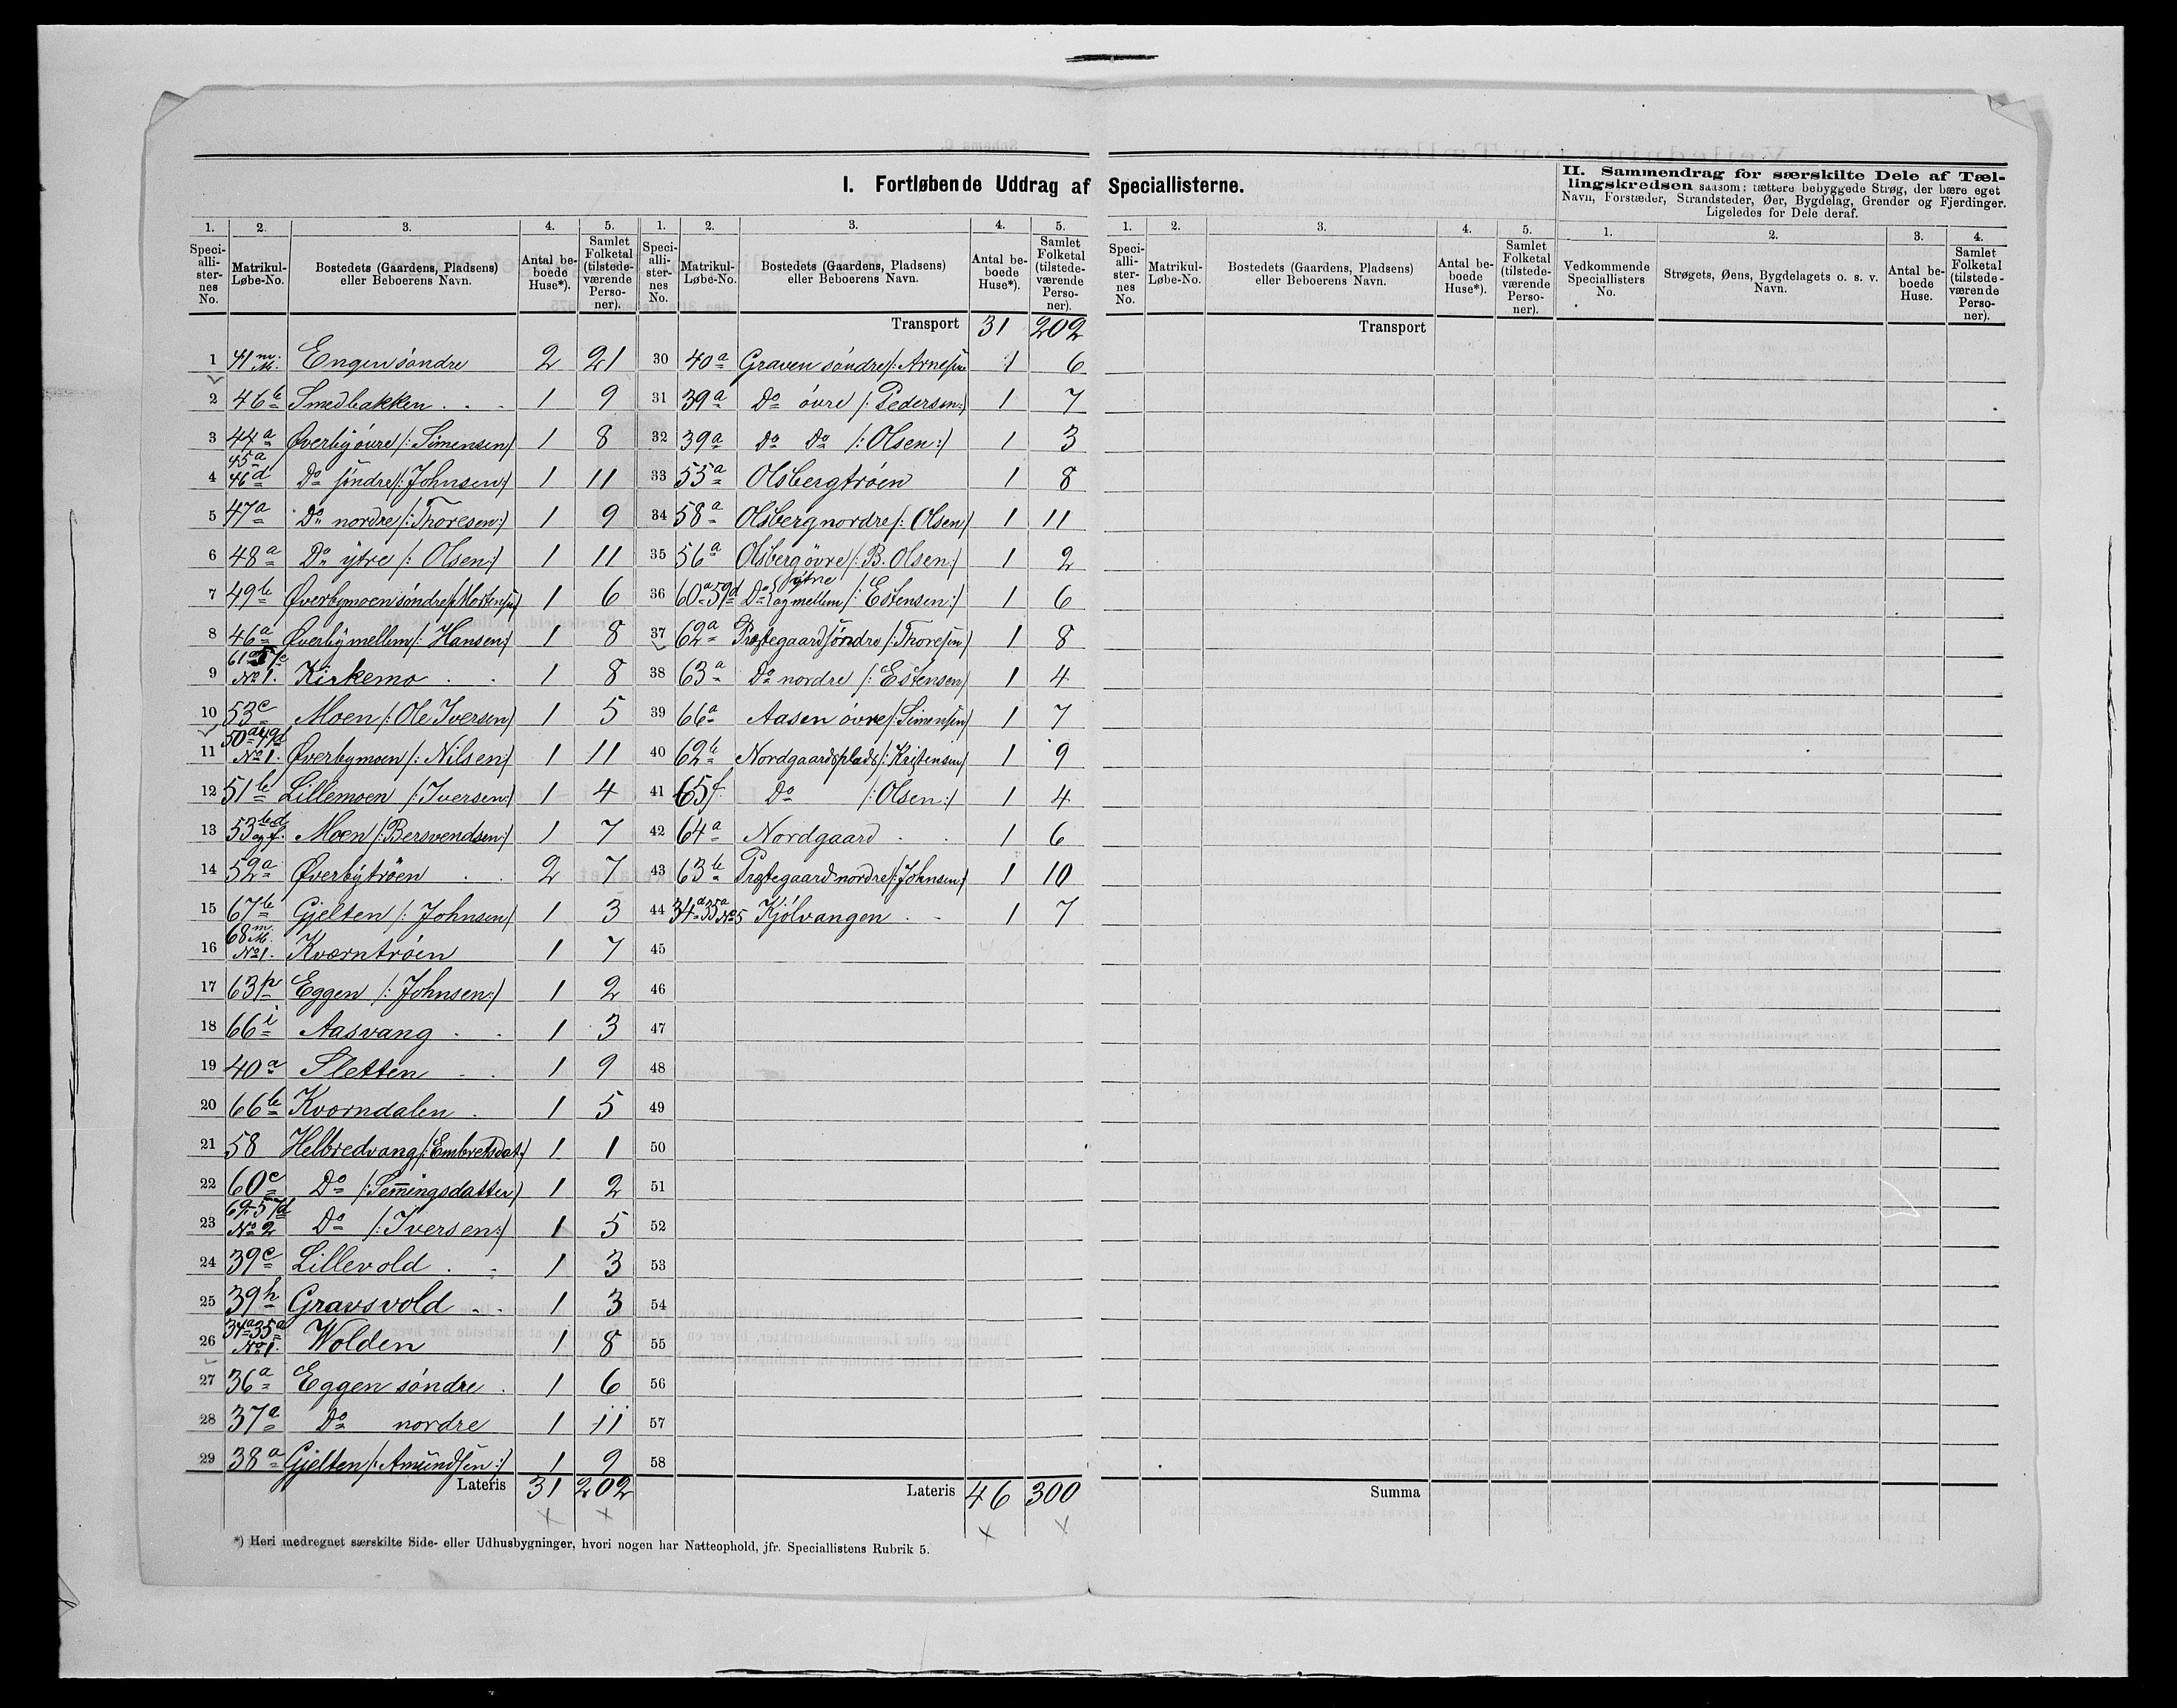 I. Fortløbende Uddrag af Speciallisterne.
II. Sammendrag for særskilte Dele af Tællingskredsen saasom: tættere bebyggede Strøg, der bære eget
Navn, Forstæder, Strandsteder, Øer, Bygdelag, Grender og Fjerdinger.
Ligeledes for Dele deraf.
1. 2. 3. 4. 5. 1. 2. 3. 4. 5. 1. 2. 3. 4. 5. 1. 2. 3. 4.
Speciallisternes No. Matrikul-Løbe-No. Bostedets (Gaardens, Pladsens) eller Beboerens Navn. Antal beboede Huse*). Samlet Folketal (tilstedeværende Personer).
Speciallisternes No. Matrikul-Løbe-No. Bostedets (Gaardens, Pladsens) eller Beboerens Navn. Antal beboede Huse*). Samlet Folketal (tilstedeværende Personer).
Speciallisternes No. Matrikul-Løbe-No. Bostedets (Gaardens, Pladsens) eller Beboerens Navn. Antal beboede Huse*). Samlet Folketal (tilstedeværende Personer).
Vedkommende Speciallisters No. Strøgets, Øens, Bygdelagets o. s. v. Navn. Antal beboede Huse. Samlet Folketal (tilstedeværende Personer).
1 41 m. Engen söndre 2 21
2 46b Smedbakken 1 9
3 44a Øverby övre /: Simensen:/ 1 8
4 45a 46d Do söndre /: Johnsen:/ 1 11
5 47a Do nordre /: Thoresen:/ 1 9
6 48a Do ytre /: Olsen:/ 1 11
7 49b Øverbymoen söndre /: Mortensen:/ 1 6
8 46a Øverby mellem /: Hansen:/ 1 8
9 No 1. Kirkemo 1 8
10 53c Moen /: Ole Iversen:/ 1 5
11 50a 49d No 1. Øverbymoen /: Nilsen:/ 1 11
12 51b Lillemoen /: Iversen:/ 1 4
13 53 b d og f. Moen /: Bersvendsen:/ 1 7
14 52a Øverbytröen 2 7
15 67b Gjelten /: Johnsen:/ 1 3
16 68 m. No 1. Kværntröen 1 7
17 63p Eggen /: Johnsen:/ 1 2
18 66i Aasvang 1 3
19 40a Sletten 1 9
20 66b Kværndalen 1 5
21 58 Helbredvang /: Embretsdat:/ 1 1
22 60c Do /: Semingsdatter:/ 1 2
23 57d No 2 Do /: Iversen:/ 1 5
24 39c Lillevold 1 3
25 39h Gravsvold 1 3
26 34a 35a No 1. Wolden 1 8
27 36a Eggen söndre 1 6
28 37a Do nordre 1 11
29 38a Gjelten /: Amundsen:/ 1 9
Lateris 31 202
Transport 31 202
30 40a Graven söndre /: Arnesen 1 6
31 39a Do övre /: Pedersen:/ 1 7
32 39a Do Do /: Olsen:/ 1 3
33 55a Olsbergtröen 1 8
34 58a Olsberg nordre /: Olsen:/ 1 11
35 56a Olsberg övre /: B. Olsen:/ 1 2
36 60a 59d Do ytre og mellem /: Estensen:/ 1 6
37 62a Præstegaard söndre /: Thoresen:/ 1 8
38 63a Do nordre /: Estensen:/ 1 4
39 66a Aasen övre /: Simensen:/ 1 7
40 62b Nordgaardsplads /: Kristensen:/ 1 9
41 65f. Do /: Olsen:/ 1 4
42 64a Nordgaard 1 6
43 63b Præstegaard nordre /: Johnsen:/ 1 10
44 34a 35a No 5 Kjölvangen 1 7
45
46
47
48
49
50
51
52
53
54
55
56
57
58
Lateris 46 300
Transport
Summa
*) Heri medregnet særskilte Side- eller Udhusbygninger, hvori nogen har Natteophold, jfr. Speciallistens Rubrik 5.